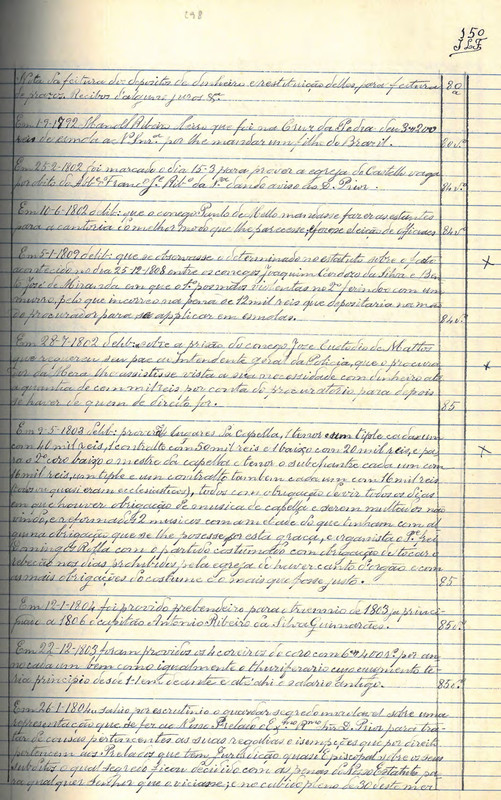 298
150
Nota da feitura dos depositos do dinheiro e restituição delles, para feitura
de prazos. Recibos d'alguns juros &ª. 80
Em 1-9-1792 Manoel Ribeiro que foi na Cruz da Pedra deu 3#200
reis de esmola ao Snr. por lhe mandar um filho do Brazil. 80 vº
Em 25-2-1802 foi marcado o dia 15-3 para prover a egreja do Castello vaga
por obito do Francº Je. dando aviso ao D. Prior. 84 vº
Em 10-6-1802 delib: que o conego Pinto de Mello mandasse fazer as estantes
para a cantoria o melhor modo que lhe parecesse; e fez-se eleição de officiaes 84 vº
Em 5-1-1802 delib: que se observasse o determinado no estatuto sobre o facto
acontecido no dia 25-12-1808 entre os conegos Joaquim Cardozo da Silva e
José de Miranda em que o 1º poz mãos violentas no 2º ferindo-o com um
murro, pelo que incorreu na pena de 12 mil reis que depositaria na mão
do procurador para se applicar em esmolas. 84 vº
Em 28-7-1802 delib: sobre a prizão do conego José Custodio de Mattos
que requereu seu pae ao Intendente Geral da Policia, que o procura-
dor da Meza lhe assista se vista a sua necessidade com dinheiro até
a quantia de cem mil reis por conta do procuratorio, para depois
se haver de quem de direito for. 85
Em 2-5-1803 delib: prover lugares da Capella, 1 tenor e um tiple cada um
com 40 mil reis, 1 contralto com 50 mil reis e 1 baixo com 20 mil reis, e pa-
ra o 2º coro baixo o mestre da capella e tenor o subchantre cada um com
16 mil reis, um tiple e um contralto tambem cada um com 16 mil reis
(todos ou quasi eram ecclesiasticos), todos com obrigação de vir todos os dias
em que houver obrigação de musica de capella e serem multados não
vindo, e reformados 12 musicos com ametade do que tinham com al-
guma obrigação que se lhe pozesse por esta graça, e organista o Pe. Frei
Domingos com o partido costumado com obrigação de tocar o
rebecão nos dias prohibidos pela egreja de haver canto d'orgão e com
as mais obrigações do costume e o mais que fosse justo. 85
Em 12-1-1804 foi provido prebendeiro para o triennio de 1803, ja princi-
piado a 1806 o capitão Antonio Ribeiro da Silva Guimarães. 85 vº
Em 22-12-1803 foram providos os coreiros do coro com 6#400 rs. por an-
no cada um bem como igualmente o thuriferario cujo augmento te-
ria principio desde 1-1 em diante e até ahi o salario antigo. 85 vº
Em 26-1-1804 sahio por escrutinio o guardar segredo inviolavel sobre uma
representação que se fez ao Nosso Prelado o Exmo Rmo Snr. D. Prior para tra-
tar de cousas pertencentes as suas regalias e isempções que por direito
pertencem aos Prelados que tem Jurisdicção quasi Episcopal sobre os seus
subditos o qual segredo ficou decidido com as penas do Nosso Estatuto, pa-
ra qualquer senhor que o viciasse, e no cubido pleno de 30 deste mez